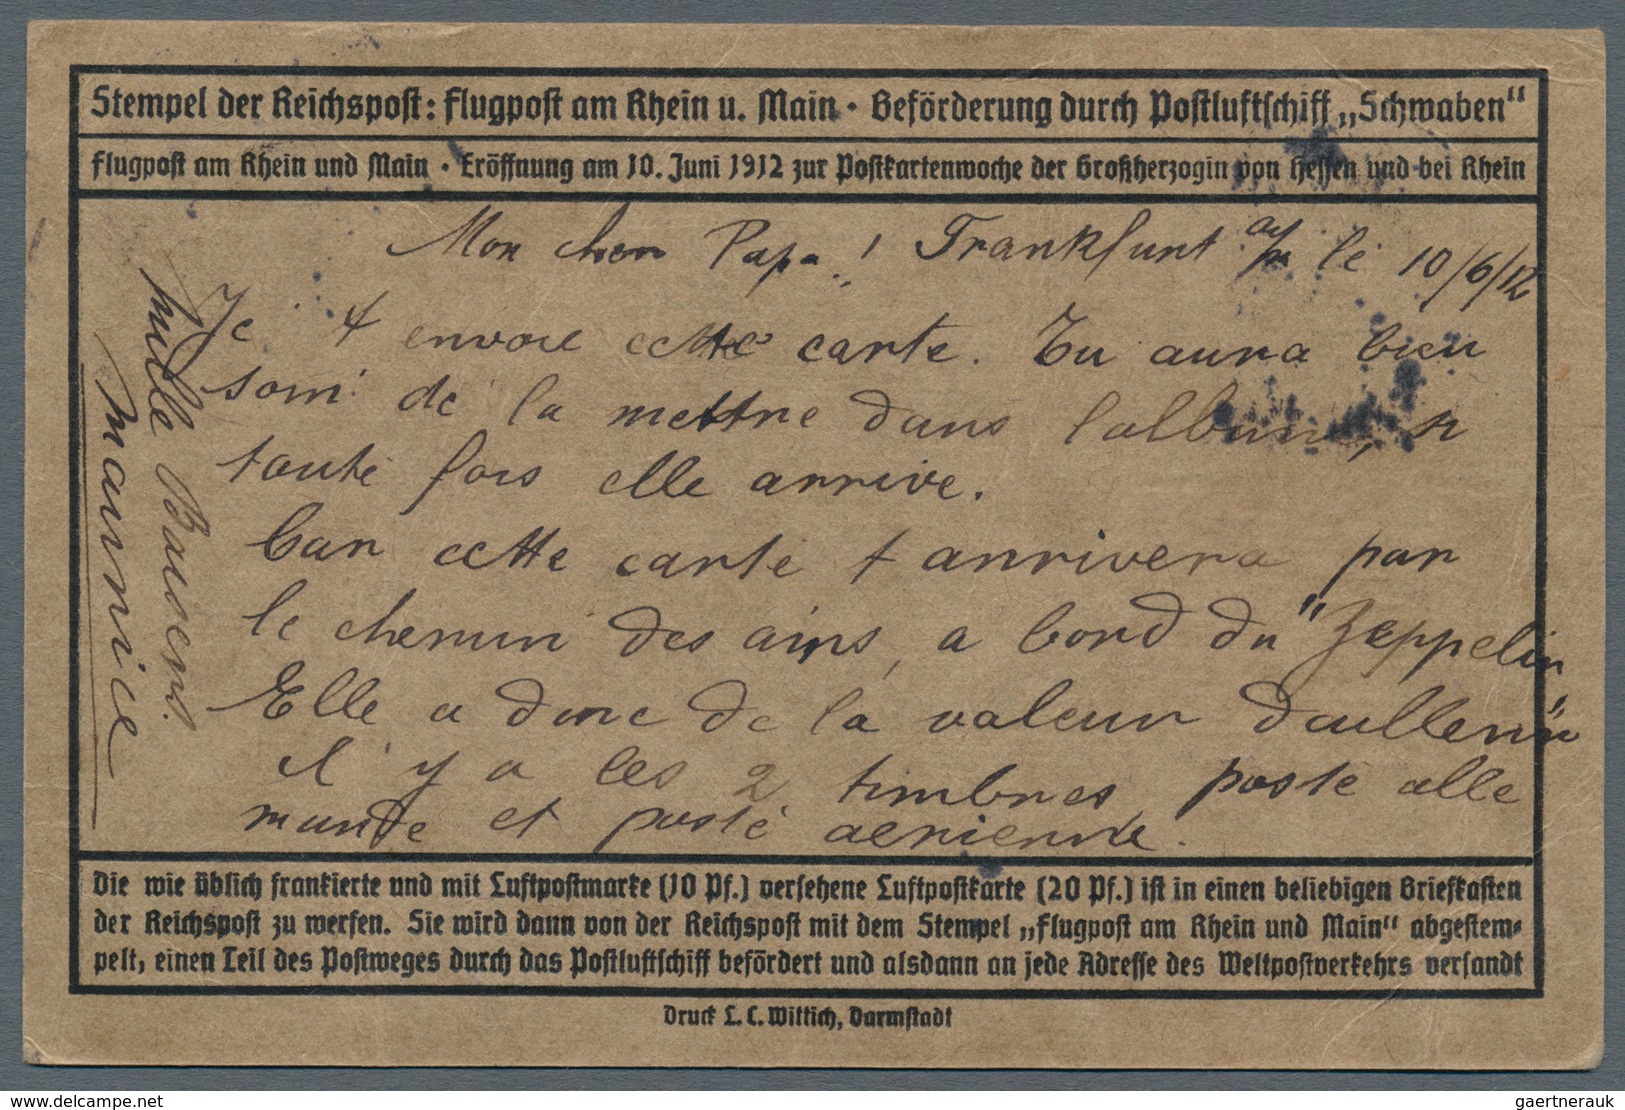 Stempel der Reichspost: Flugpost am Rhein u. Main • Beförderung durch Postluftschiff „Schwaben"
Flugpost am Rhein und Main • Eröffnung am 10. Juni 1912 zur Postkartenwoche der Großherzogin von Hessen und bei Rhein
Mon cher Papa! Frankfurt a/m le 10/6/12
Je t envoie cette carte. Tu aura bien
soin de la mettre dans l'album, si
toute fois elle arrive.
Car cette carte t arrivera par
le chemin des airs, a bord du "Zeppelin"
Elle a donc de la valeur d'ailleurs
il y a les 2 timbres poste alle
mande et poste aerienne.
Mille Baisers.
Maurice
Die wie üblich frankierte und mit Luftpostmarke (10 Pf.) versehene Luftpostkarte (20 Pf.) ist in einen beliebigen Briefkasten
der Reichspost zu werfen. Sie wird dann von der Reichspost mit dem Stempel „Flugpost am Rhein und Main" abgestem-
pelt, einen Teil des Postweges durch das Postluftschiff befördert und alsdann an jede Adresse des Weltpostverkehrs versandt
Druck L. C. Wittich, Darmstadt
gaertnerauk @ www.delcampe.net